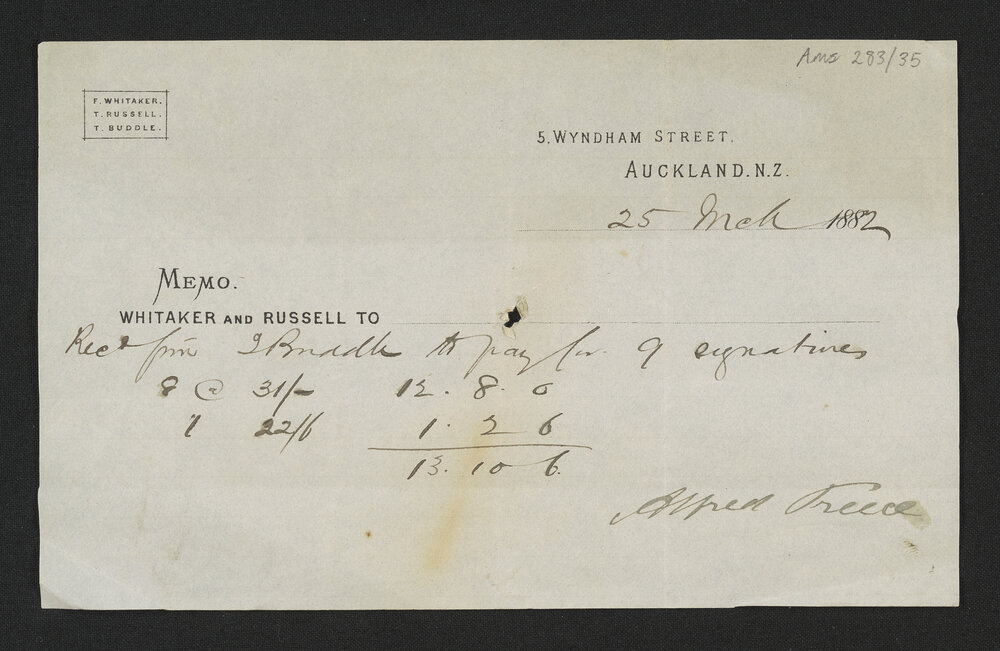 Ams 283/35
F. WHITAKER.
T. RUSSELL.
T. BUDDLE.
5. WYNDHAM STREET.
AUCKLAND. N.Z.
25 Mch 1882
MEMO.
WHITAKER AND RUSSELL TO
Recd from T Buddle to pay for 9 signatures
8 @ 31/- 12. 8. 0
1 22/6 1. 2 6
13. 10 6.
Alfred